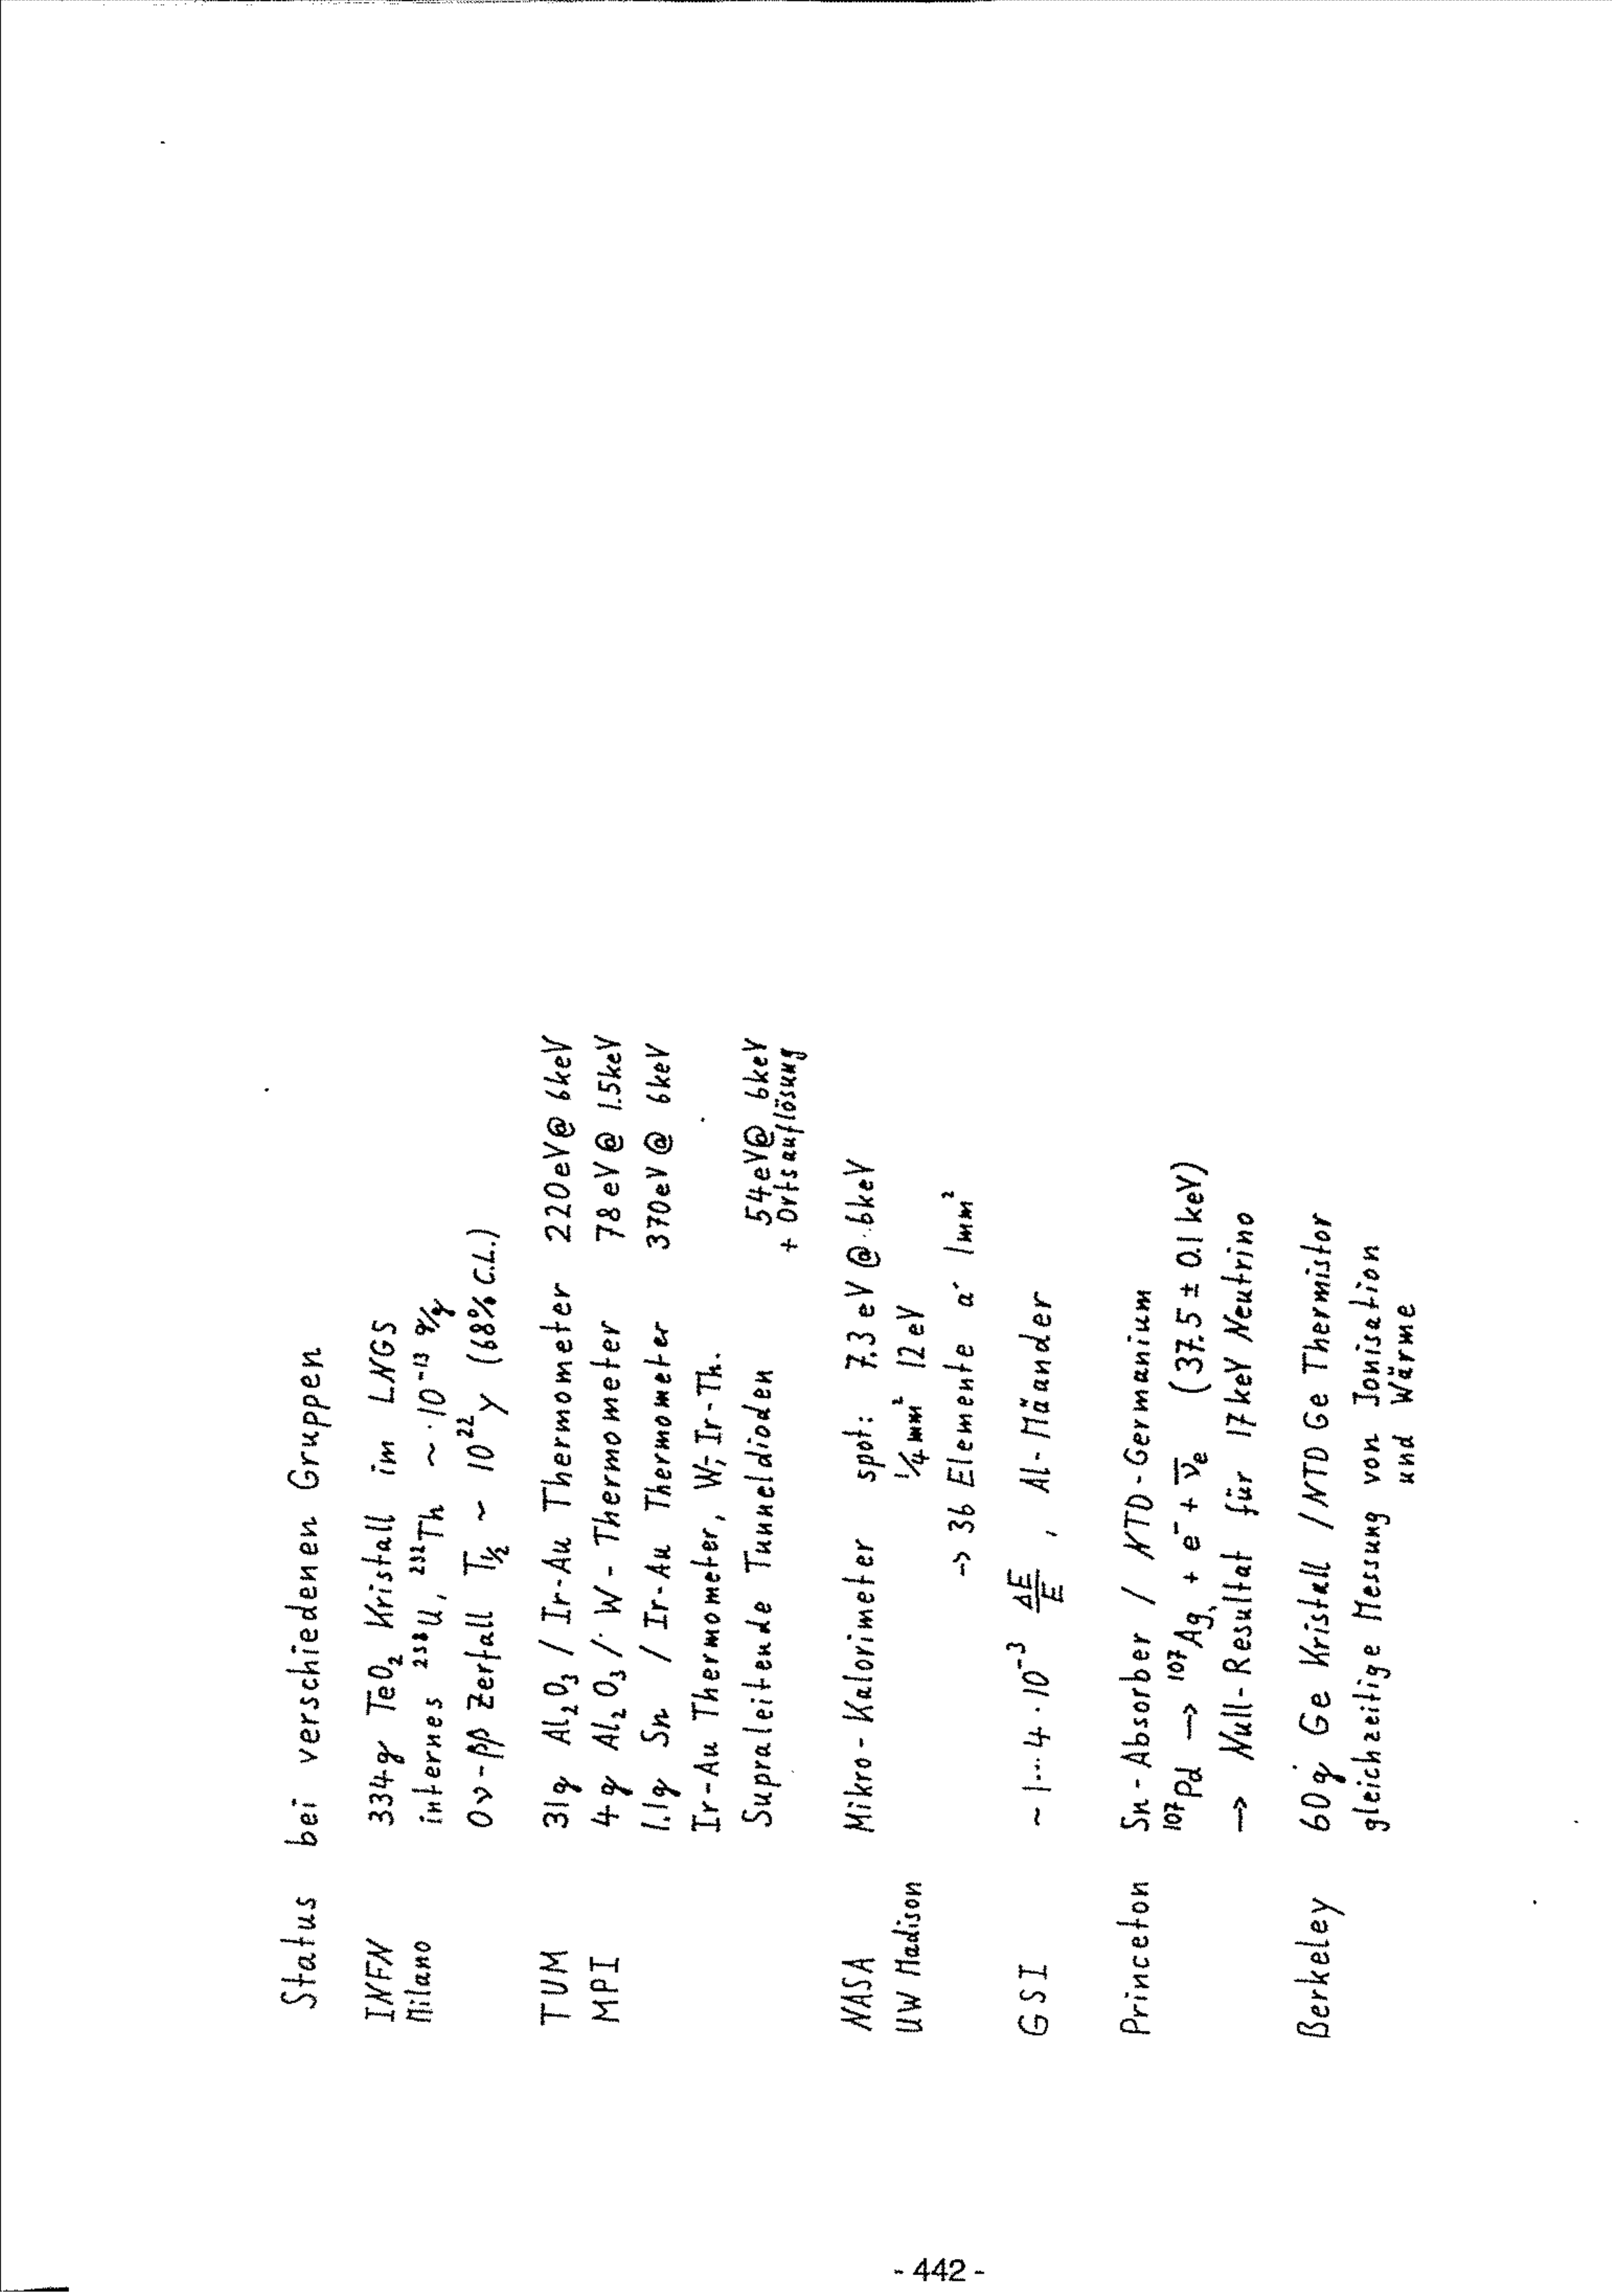 Status bei verschiedenen Gruppen
INFN 334g TeO₂ Kristall im LNGS
Milano internes ²³⁸U, ²³²Th ~ ·10⁻¹³ g/g
0ν-ββ Zerfall T½ ~ 10²² y (68% C.L.)
TUM 31g Al₂O₃ / Ir-Au Thermometer 220eV@ 6keV
MPI 4g Al₂O₃ / W-Thermometer 78eV@ 1.5keV
1.1g Sn / Ir-Au Thermometer 370eV@ 6keV
Ir-Au Thermometer, W; Ir-Th.
Supraleitende Tunneldioden 54eV@ 6keV
+ Ortsauflösung
NASA Mikro-Kalorimeter spot: 7.3 eV @ 6keV
UW Madison ¼ mm² 12eV
→ 36 Elemente a´ 1mm²
GSI ~ 1...4 · 10⁻³ ΔE/E , Al-Mäander
Princeton Sn-Absorber / NTD-Germanium
¹⁰⁷Pd → ¹⁰⁷Ag + e⁻ + ν̄ₑ (37.5 ± 0.1 keV)
→ Null-Resultat für 17keV Neutrino
Berkeley 60g Ge Kristall / NTD Ge Thermistor
gleichzeitige Messung von Ionisation
und Wärme
- 442 -